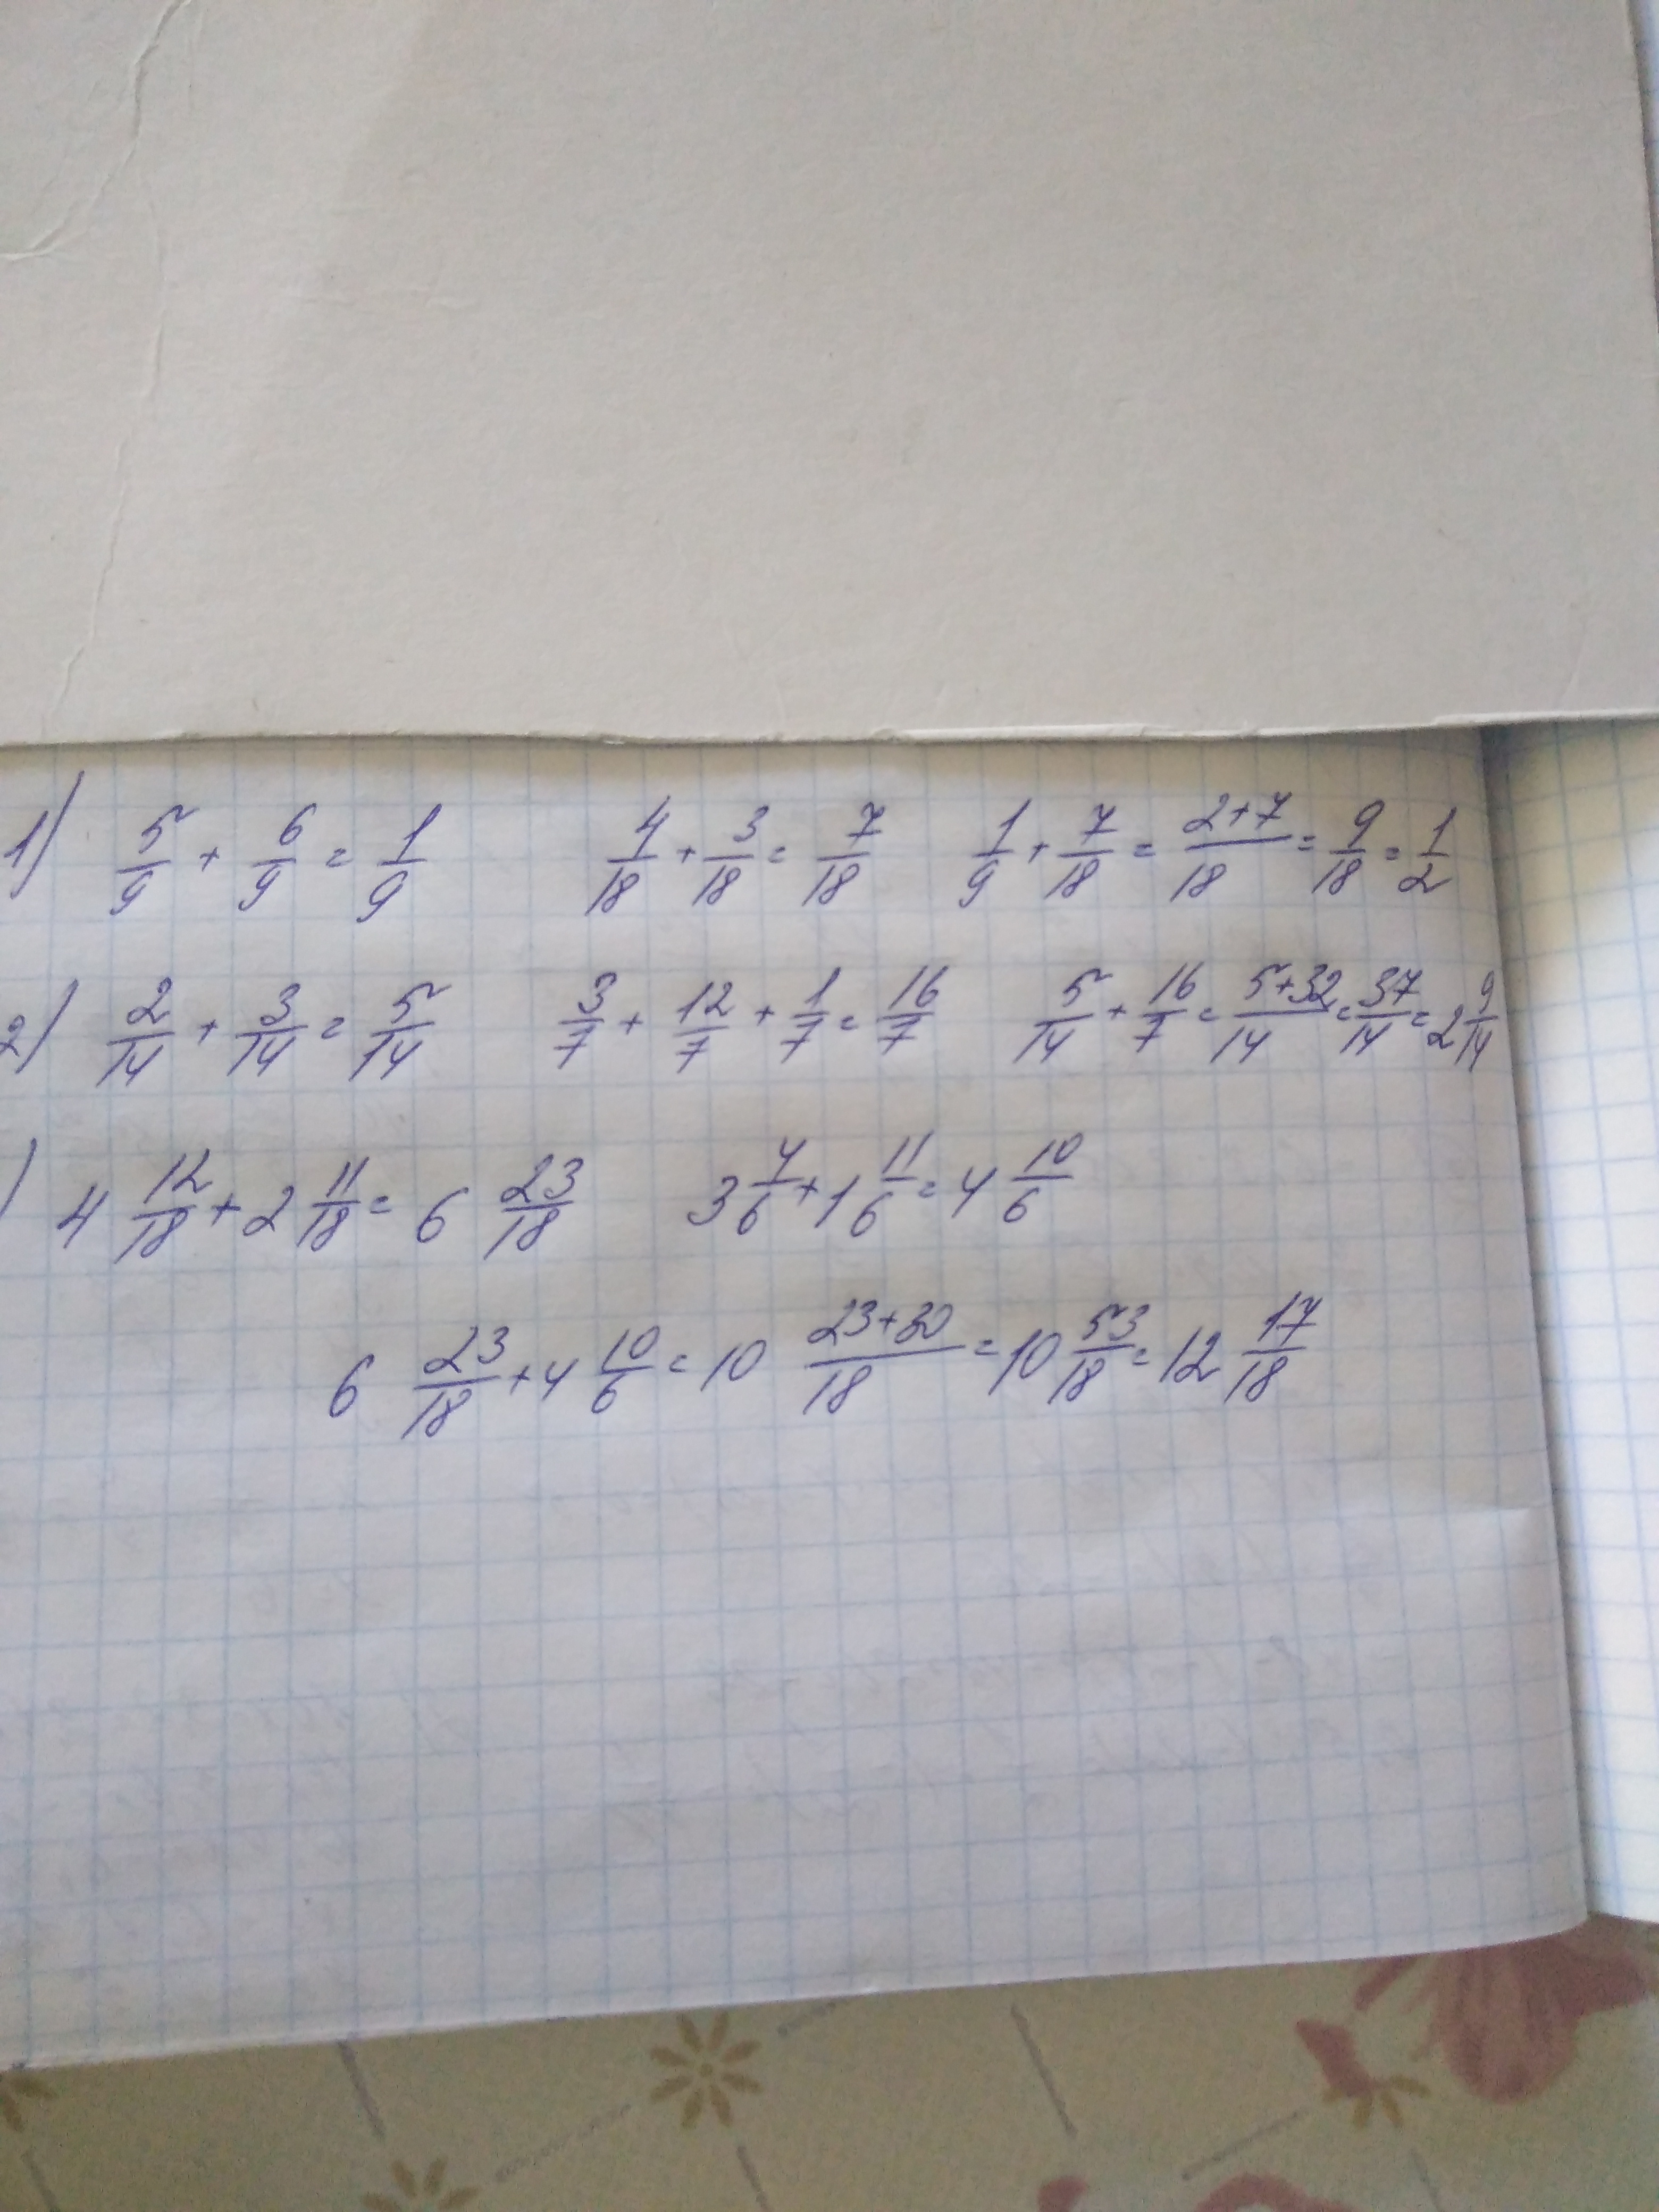 1) 5/9 + 6/9 = 1/9 4/18 + 3/18 = 7/18 1/9 + 7/18 = 2+7/18 = 9/18 = 1/2
2) 2/14 + 3/14 = 5/14 3/7 + 12/7 + 1/7 = 16/7 5/14 + 16/7 = 5+32/14 = 37/14 = 2 9/14
) 4 12/18 + 2 11/18 = 6 23/18 3 4/6 + 1 11/6 = 4 10/6
6 23/18 + 4 10/6 = 10 23+30/18 = 10 53/18 = 12 17/18